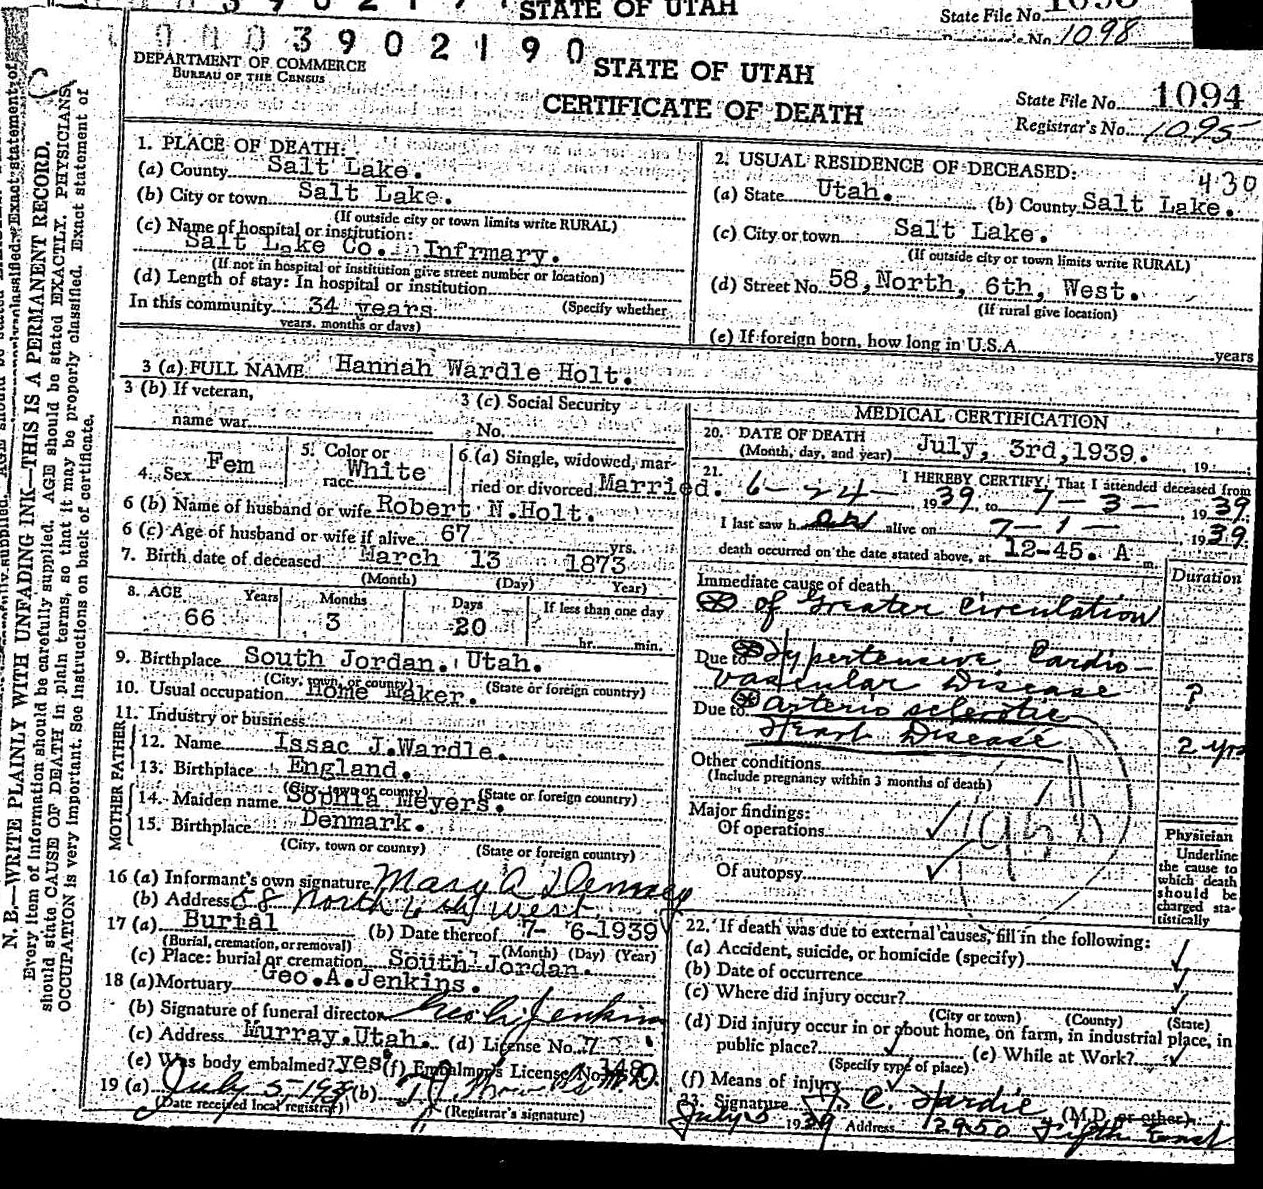 STATE OF UTAH
State File No.
Registrar's No. 1098
0003902190
DEPARTMENT OF COMMERCE
BUREAU OF THE CENSUS
STATE OF UTAH
CERTIFICATE OF DEATH
State File No. 1094
Registrar's No. 1095
N. B.—WRITE PLAINLY WITH UNFADING INK—THIS IS A PERMANENT RECORD.
Every item of information should be carefully supplied. AGE should be stated EXACTLY. PHYSICIANS
should state CAUSE OF DEATH in plain terms, so that it may be properly classified. Exact statement of
OCCUPATION is very important. See instructions on back of certificate.
1. PLACE OF DEATH:
(a) County Salt Lake.
(b) City or town Salt Lake.
(If outside city or town limits write RURAL)
(c) Name of hospital or institution:
Salt Lake Co. Infrmary.
(If not in hospital or institution give street number or location)
(d) Length of stay: In hospital or institution
In this community 34 years (Specify whether
years, months or days)
2. USUAL RESIDENCE OF DECEASED:
430
(a) State Utah. (b) County Salt Lake.
(c) City or town Salt Lake.
(If outside city or town limits write RURAL)
(d) Street No. 58, North, 6th, West.
(If rural give location)
(e) If foreign born, how long in U.S.A. years
3 (a) FULL NAME Hannah Wardle Holt.
3 (b) If veteran,
name war
3 (c) Social Security
No.
4. Sex Fem
5. Color or
race White
6 (a) Single, widowed, mar-
ried or divorced Married.
6 (b) Name of husband or wife Robert N. Holt.
6 (c) Age of husband or wife if alive 67 yrs.
7. Birth date of deceased March 13 1873
(Month) (Day) Year)
8. AGE Years Months Days If less than one day
66 3 20 hr. min.
9. Birthplace South Jordan. Utah.
(City, town, or county) (State or foreign country)
10. Usual occupation Home Maker.
11. Industry or business
FATHER
12. Name Issac J. Wardle.
13. Birthplace England.
(City, town or county) (State or foreign country)
MOTHER
14. Maiden name Sophia Meyers.
15. Birthplace Denmark.
(City, town or county) (State or foreign country)
16 (a) Informant's own signature Mary A
(b) Address 58 North 6th West
17 (a) Burial (b) Date thereof 7- 6-1939
(Burial, cremation, or removal) (Month) (Day) (Year)
(c) Place: burial or cremation South Jordan.
18 (a) Mortuary Geo. A. Jenkins.
(b) Signature of funeral director Geo A Jenkins
(c) Address Murray, Utah. (d) License No. 7
(e) Was body embalmed? yes (f) Embalmer's License No. 149
19 (a) July 5, 1939 (b)
(Date received local registrar) (Registrar's signature)
MEDICAL CERTIFICATION
20. DATE OF DEATH
(Month, day, and year) July, 3rd, 1939. , 19
21. I HEREBY CERTIFY, That I attended deceased from
6-24- 1939 to 7-3- 1939
I last saw her alive on 7-1- 1939
death occurred on the date stated above, at 12-45. A m.
Duration
Immediate cause of death
of Greater Circulation
Due to Hypertensive Cardio-
vascular Disease ?
Due to Arterio sclerotic
Heart Disease 2 yrs
Other conditions
(Include pregnancy within 3 months of death)
Major findings:
Of operations
Of autopsy
Physician
Underline
the cause to
which death
should be
charged sta-
tistically
22. If death was due to external causes, fill in the following:
(a) Accident, suicide, or homicide (specify)
(b) Date of occurrence
(c) Where did injury occur?
(City or town) (County) (State)
(d) Did injury occur in or about home, on farm, in industrial place, in
public place? (e) While at Work?
(Specify type of place)
(f) Means of injury
23. Signature C. Hardie (M.D. or other)
July 5 1939 Address 2950 Fifth East